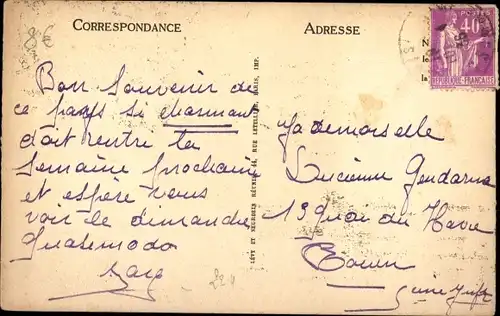 CORRESPONDANCE
Bon souvenir de
ce pays si charmant
doit rentre la
semaine prochaine
et espère vous
voir le dimanche
Quasimodo
LÉVY ET NEURDEIN RÉUNIS, 44, RUE LETELLIER, PARIS, IMP.
ADRESSE
POSTES
40
RÉPUBLIQUE FRANÇAISE
N
le
la
Mademoiselle
Lucienne Gendarme
19 Quai du Havre
Rouen
Seine Infre